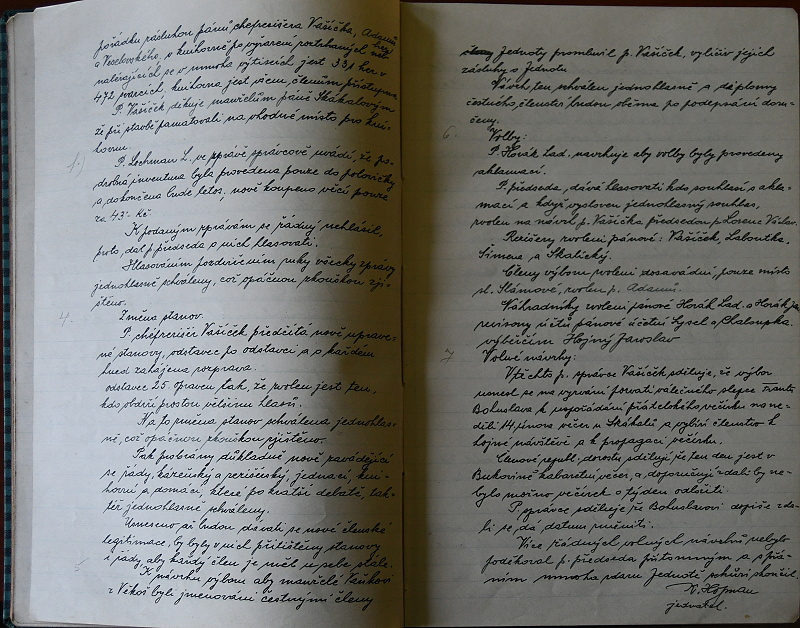 pořádku násluhou pánů chefrevisera Vašíčka, Adamů
a Veselovského, v knihovně po vyřazení roztrhaných knih
nalézajících se v mnoha výtiscích jest 331 kus v
472 svazcích, knihovna jest všem členům přístupna.
P. Vašíček děkuje manželům pánů Skákalovým
že při stavbě pamatovali na vhodné místo pro kni-
hovnu.
P. Lochman L. ve zprávě správcově uvádí, že po-
drobná inventura byla provedena pouze do polovičky
a dokončena bude letos, nově koupeno věcí pouze
za 43.- Kč.
K podaným zprávám se řádný nehlásil,
proto, dal p. předseda o nich hlasovati.
Hlasováním pozdvižením ruky všecky zprávy
jednohlasně schváleny, což opačnou zkouškou zji-
štěno.
4. Změna stanov.
P. chefrevisér Vašíček předčítá nově uprave-
né stanovy, odstavec po odstavci a o každém
hned zahájena rozprava.
odstavec 25. opraven tak, že zvolen jest ten,
kdo obdrží prostou většinu hlasů.
Na to změna stanov schválena jednohlas-
ně, což opačnou zkouškou zjištěno.
Pak probrány důkladně nově zavádějící
se řády, kázeňský a revisérský, jednací, kni-
hovní a domácí, které po kratší debatě, tak-
též jednohlasně schváleny.
Usneseno až budou dávati se nové členské
legitimace, by byly v nich přitištěny stanovy
i řády, aby každý člen je měl u sebe stále.
K návrhu výboru aby manželé Vaňkovi
z Věkoš byli jmenováni čestnými členy
Jednoty promluvil p. Vašíček, vylíčiv jejich
zásluhy o Jednotu
Návrh ten schválen jednohlasně a diplomy
čestného členství budou oběma po podepsání doru-
čeny.
6. Volby:
P. Horák Lad. navrhuje aby volby byly provedeny
aklamací.
P. předseda, dává hlasovati kdo souhlasí s akla-
mací a když vysloven jednohlasný souhlas,
zvolen na návrh p. Vašíčka předsedou p. Lorenc Václav.
Revisery zvoleni pánové: Vašíček, Laboutka,
Šimena a Skalický.
Členy výboru zvoleni dosavádní, pouze místo
sl. Slámové, zvolen p. Adamů.
Náhradníky zvoleni pánové Horák Lad. a Horák Ja.
revisory účtů pánové účetní Lysel a Chaloupka.
výběrčím Hojný Jaroslav
7 Volné návrhy:
V těchto p. správce Vašíček sděluje, že výbor
usnesl se na vyzvání pozvati válečného slepce Franta
Bohuslava k uspořádání přátelského večírku na ne-
děli 14. února večer u Skákalů a vybízí členstvo k
hojné návštěvě a k propagaci večírku.
Členové republ. dorostu sdělují že ten den jest v
Bukovině kabaretní večer, a doporučují zdali by ne-
bylo možno večírek o týden odložiti.
P. správce sděluje že Bohuslavovi dopíše zda-
li se dá datum změniti.
Více žádných volných návrhů nebylo
poděkoval p. předseda přítomným a s přá-
ním mnoha zdaru Jednotě schůzi skončil.
V. Hofman
jednatel.